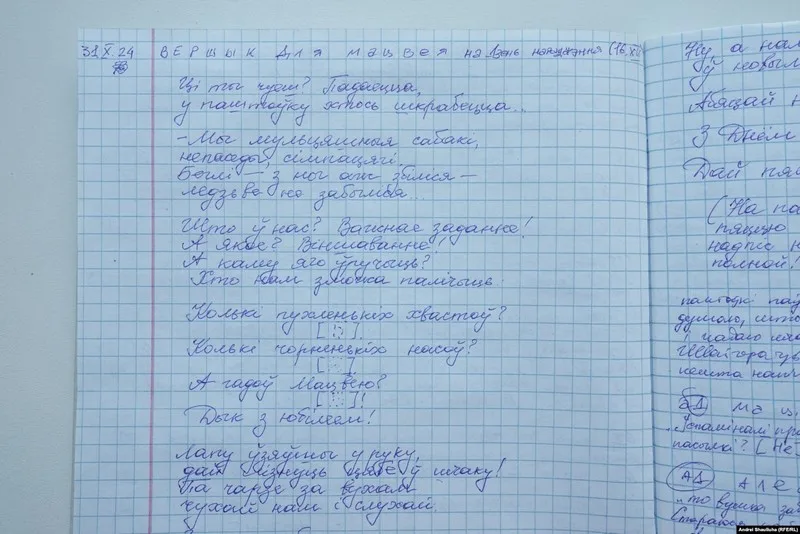 31.X.24 ВЕРШЫК ДЛЯ МАЦВЕЯ на Дзень нараджэння (16.XI
Ці ты чуеш? Падаецца,
у паштоўку хтось шкрабецца...
– Мы мульцяшныя сабакі,
непаседы, сімпацягі.
Беглі – з ног аж збіліся –
ледзьве не забыліся...
Што ў нас? Важнае заданне!
А якое? Віншаванне!
А каму яго ўручыць?
Хто нам зможа палічыць:
Колькі пухленькіх хвастоў?
[ ]
Колькі чорненькіх насоў?
[ ]
А гадоў Мацвею?
[ ]!
Дык з юбілеем!
Лапу ўзяўшы у руку,
дай лізнуць цябе ў шчаку!
Па чарзе за вухам
чухай нам і слухай.
Ну, а нам
ў новым
Абяцай н
З Днём
Дай пяц
(На па
пяцую
надпіс н
полной!
паштоўкі паў
думаю, што
і надаю
нешта нам
АД
МАЦ
"Успаміналі пра
пасылкі? [Не
АД
АЛЕ
"то вушка за
Стараюс
Andrei Shauliuha (RFE/RL)